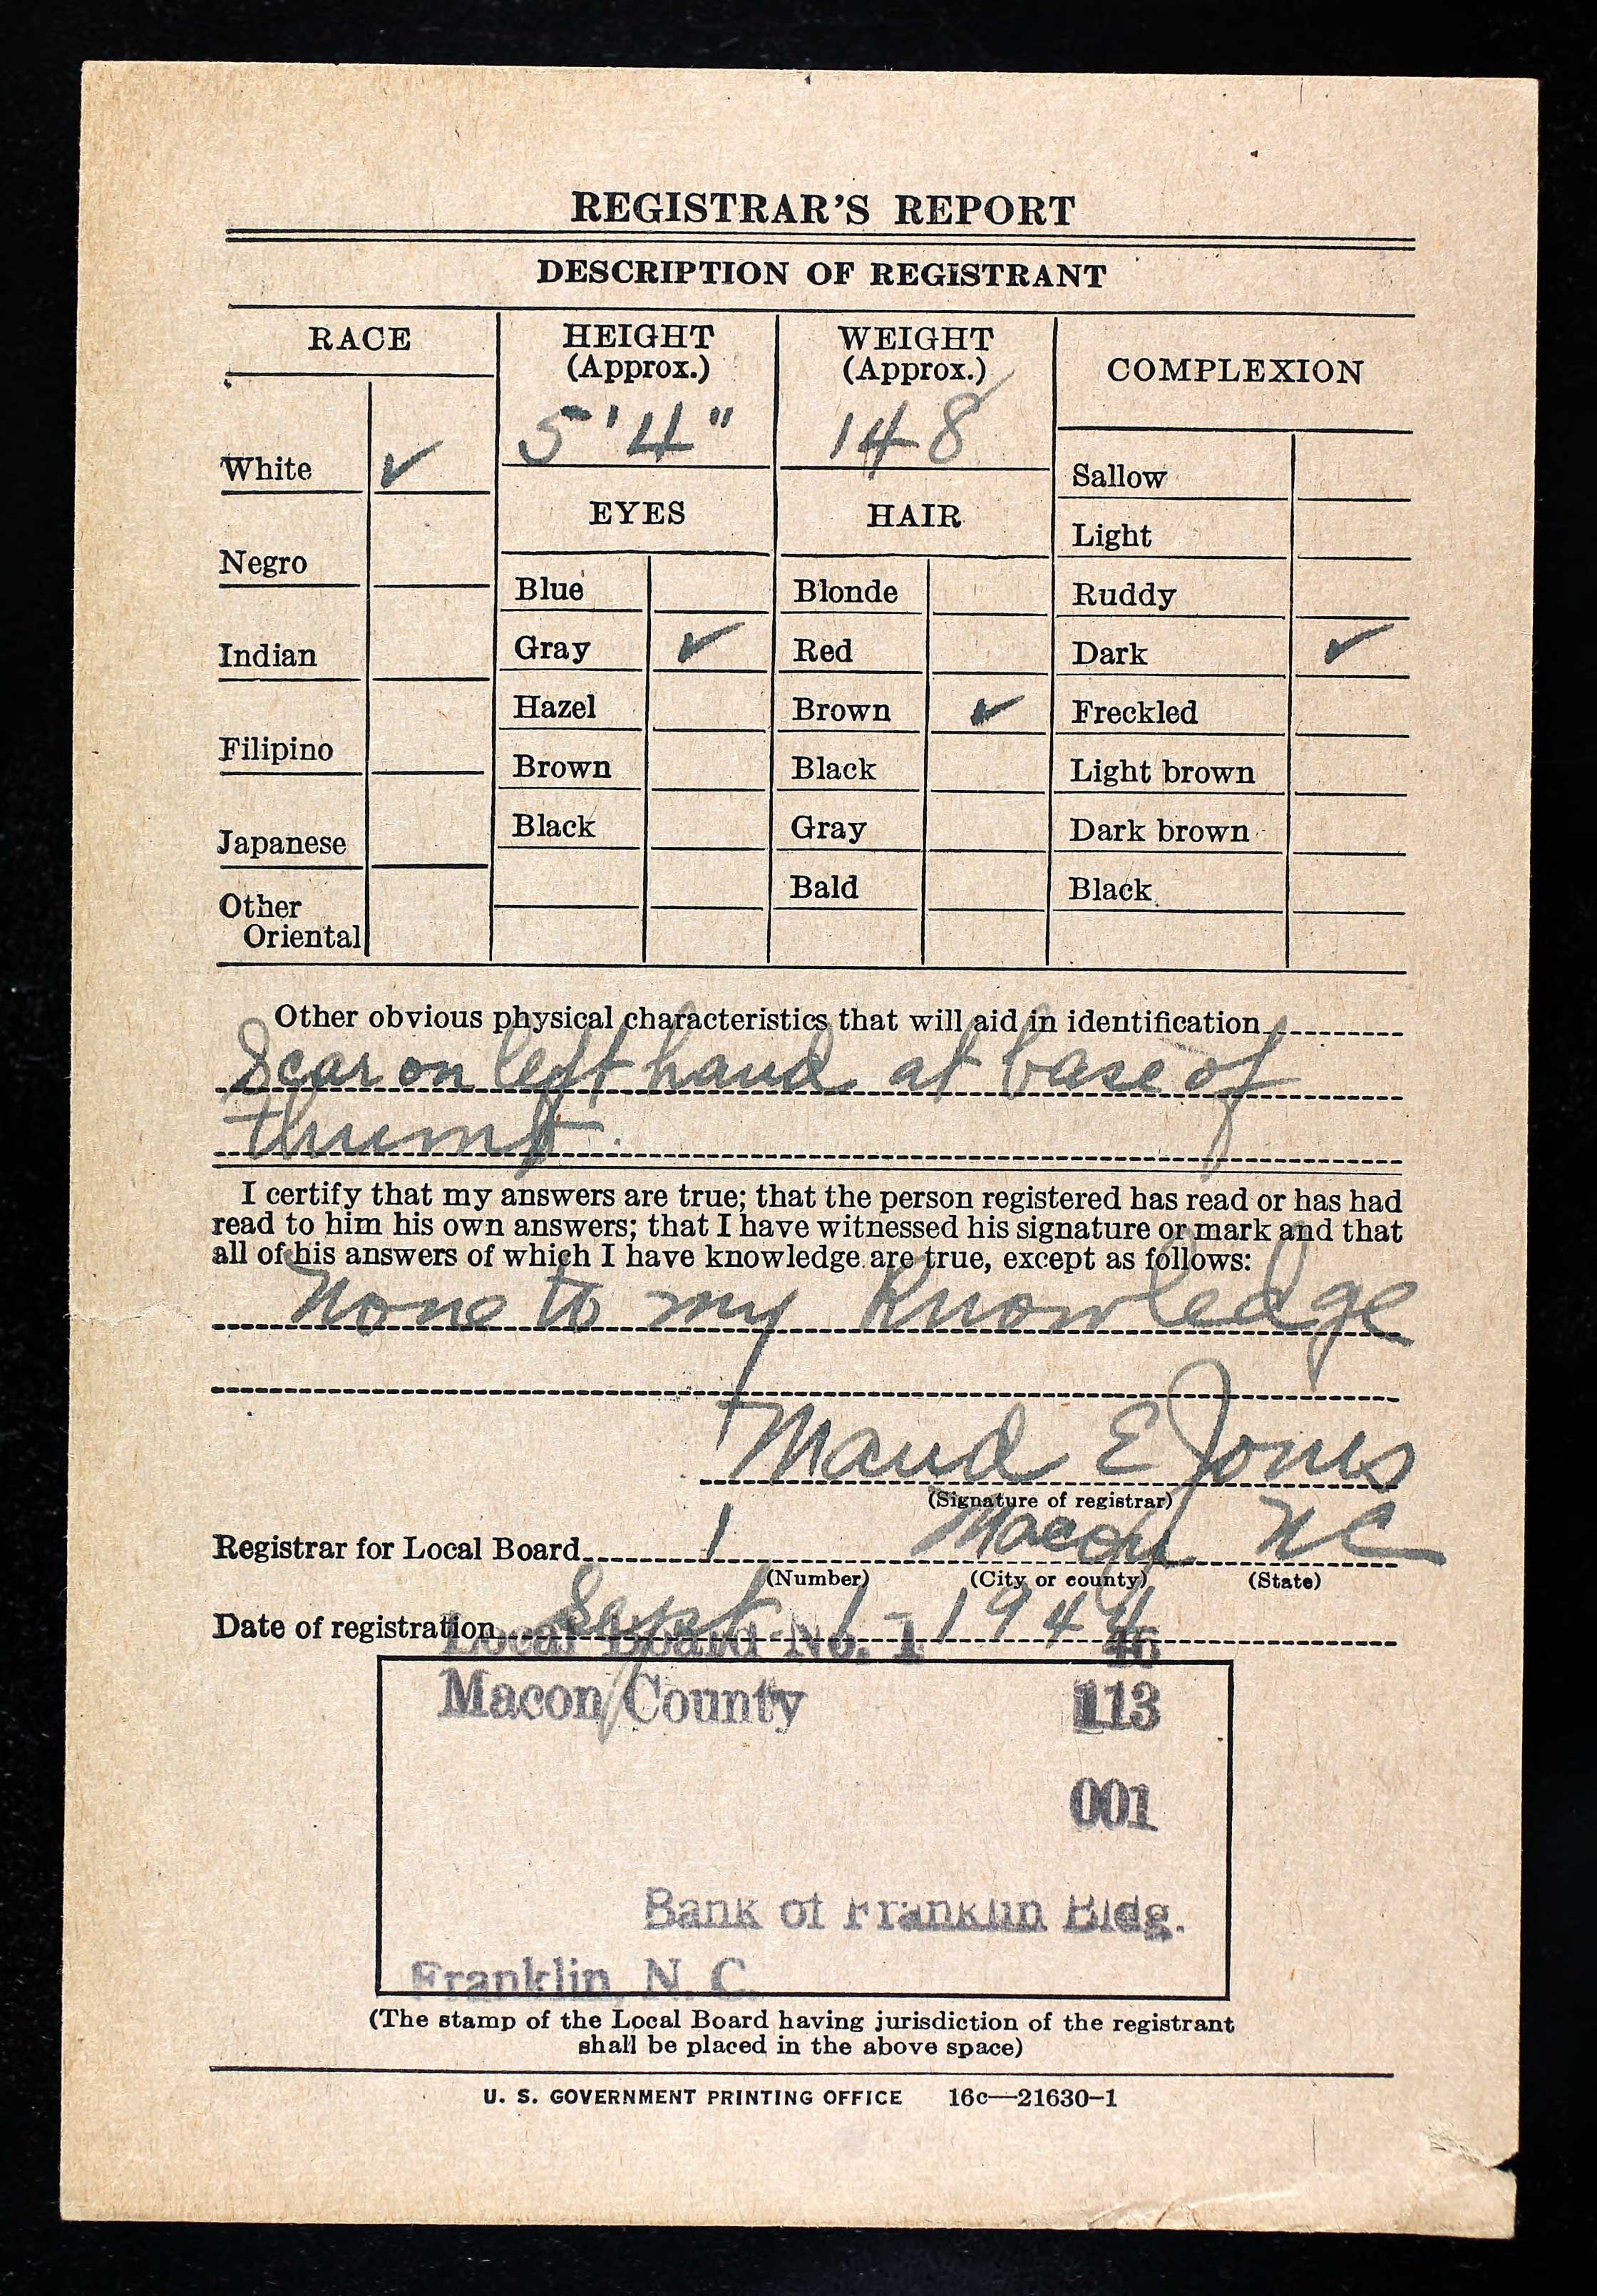 REGISTRAR'S REPORT
DESCRIPTION OF REGISTRANT
RACE
HEIGHT
(Approx.)
5'4"
WEIGHT
(Approx.)
148
COMPLEXION
White ✓
Negro
Indian
Filipino
Japanese
Other
Oriental
EYES
Blue
Gray ✓
Hazel
Brown
Black
HAIR
Blonde
Red
Brown ✓
Black
Gray
Bald
Sallow
Light
Ruddy
Dark ✓
Freckled
Light brown
Dark brown
Black
Other obvious physical characteristics that will aid in identification
Scar on left hand at base of
thumb.
I certify that my answers are true; that the person registered has read or has had
read to him his own answers; that I have witnessed his signature or mark and that
all of his answers of which I have knowledge are true, except as follows:
None to my Knowledge
Maud E Jones
(Signature of registrar)
Registrar for Local Board 1 Macon NC
(Number) (City or county) (State)
Date of registration Sept 1-1944
Local Board No. 1 46
Macon County 113
001
Bank of Franklin Bldg.
Franklin, N. C.
(The stamp of the Local Board having jurisdiction of the registrant
shall be placed in the above space)
U. S. GOVERNMENT PRINTING OFFICE 16c—21630-1